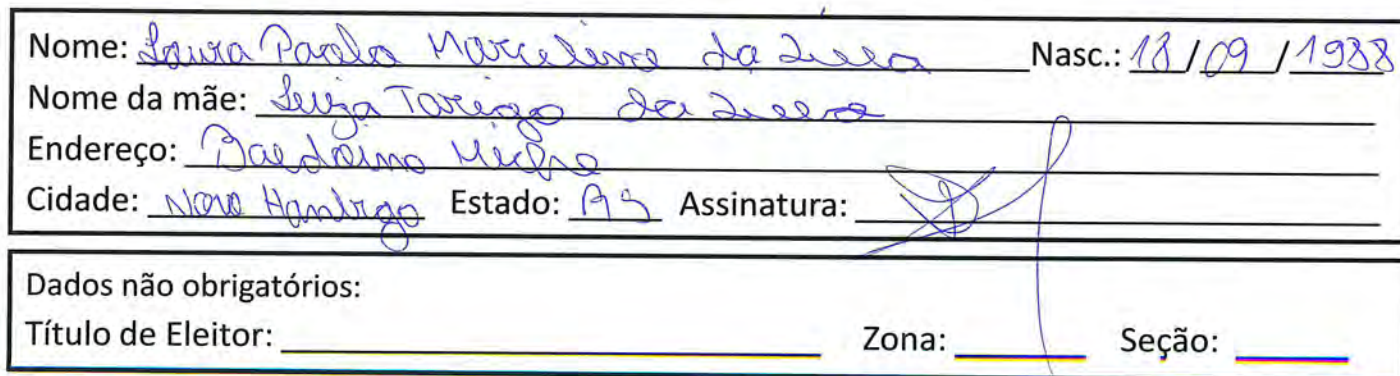 Nome: Laura Paola Marcelino da Silva Nasc.: 18/09/1988
Nome da mãe: Luiza Tarigo da Silva
Endereço: Balduino
Cidade: Novo Hambrgo Estado: RS Assinatura:
Dados não obrigatórios:
Título de Eleitor: Zona: Seção: